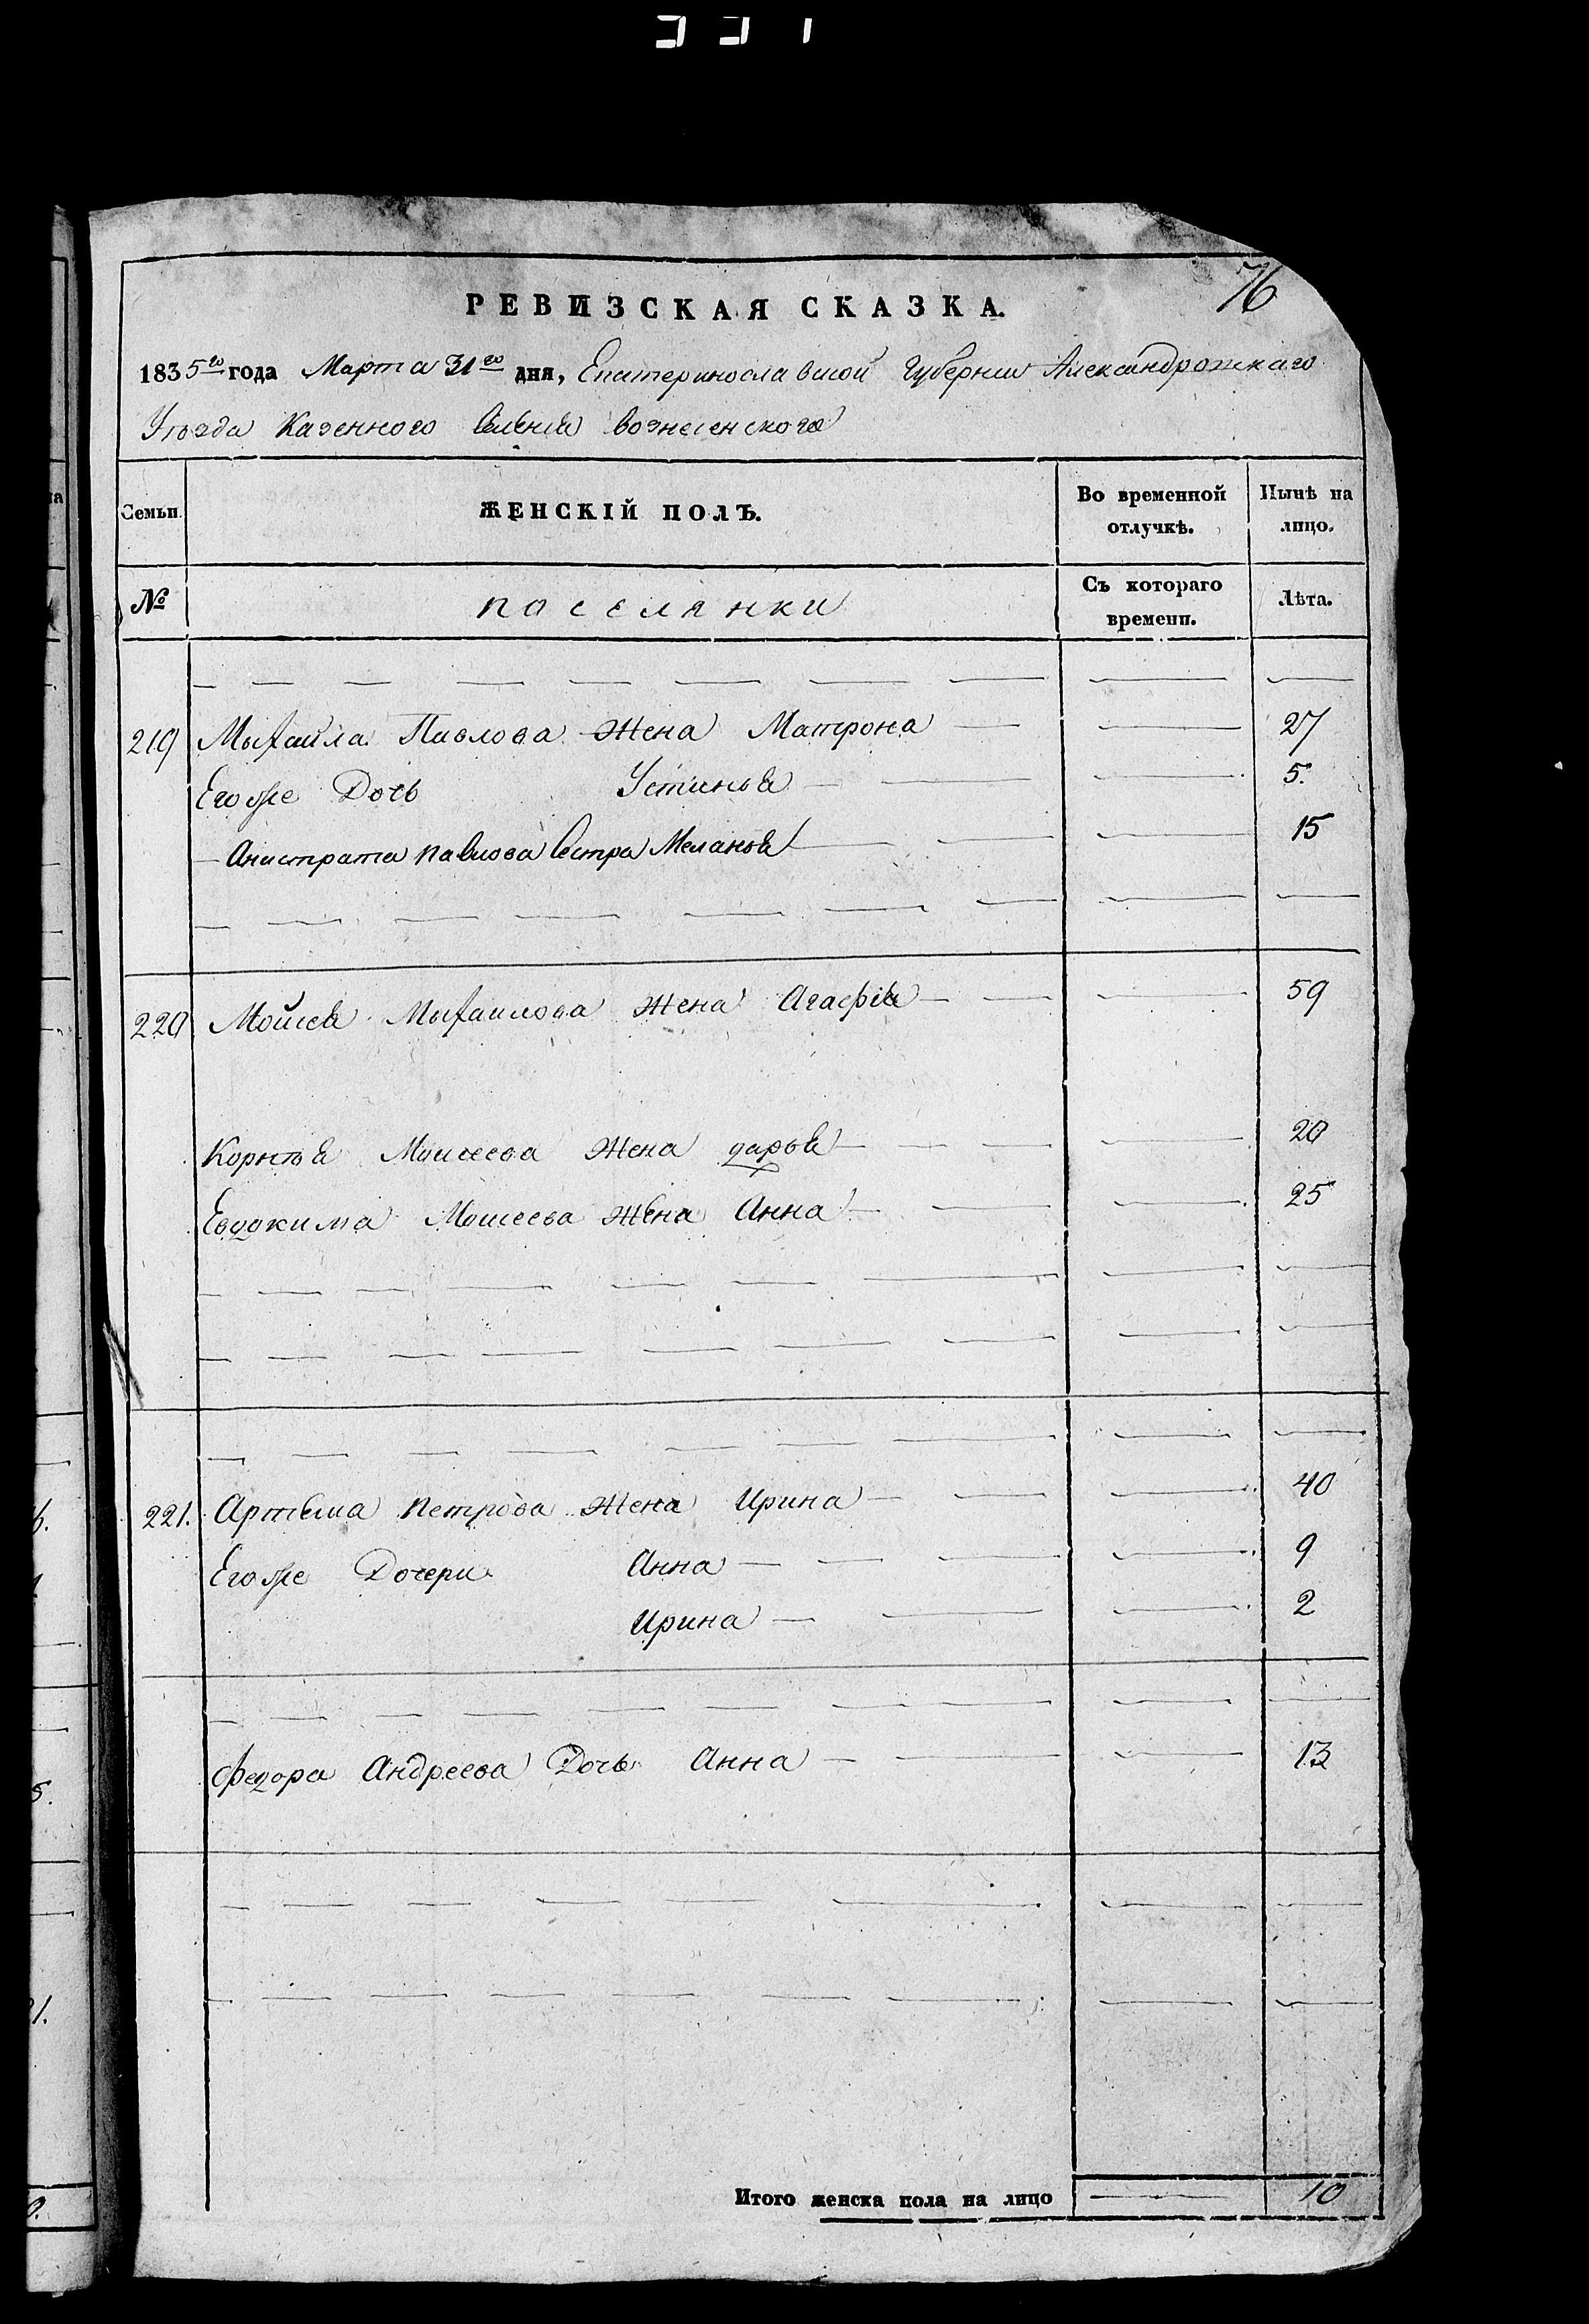 337
76
РЕВИЗСКАЯ СКАЗКА.
1835го года Марта 31го дня, Екатеринославской Губернии Александровскаго
Уѣзда Казенного Селенія Вознесенского
Семьи.
ЖЕНСКІЙ ПОЛЪ.
Во временной отлучкѣ.
Нынѣ на лицо.
№
поселянки
Съ котораго времени.
Лѣта.
219 Михайла Павлова Жена Матрона 27
Его же Дочь Устинья 5.
Анистрата Павлова Сестра Меланья 15
220 Мойсея Михаилова Жена Агафія 59
Корнѣя Моисеева Жена дарья 20
Евдокима Моисеева Жена Анна 25
221. Артема Петрова Жена Ирина 40
Его же Дочери Анна 9
Ирина 2
Федора Андреева Дочь Анна 13
Итого женска пола на лицо 10